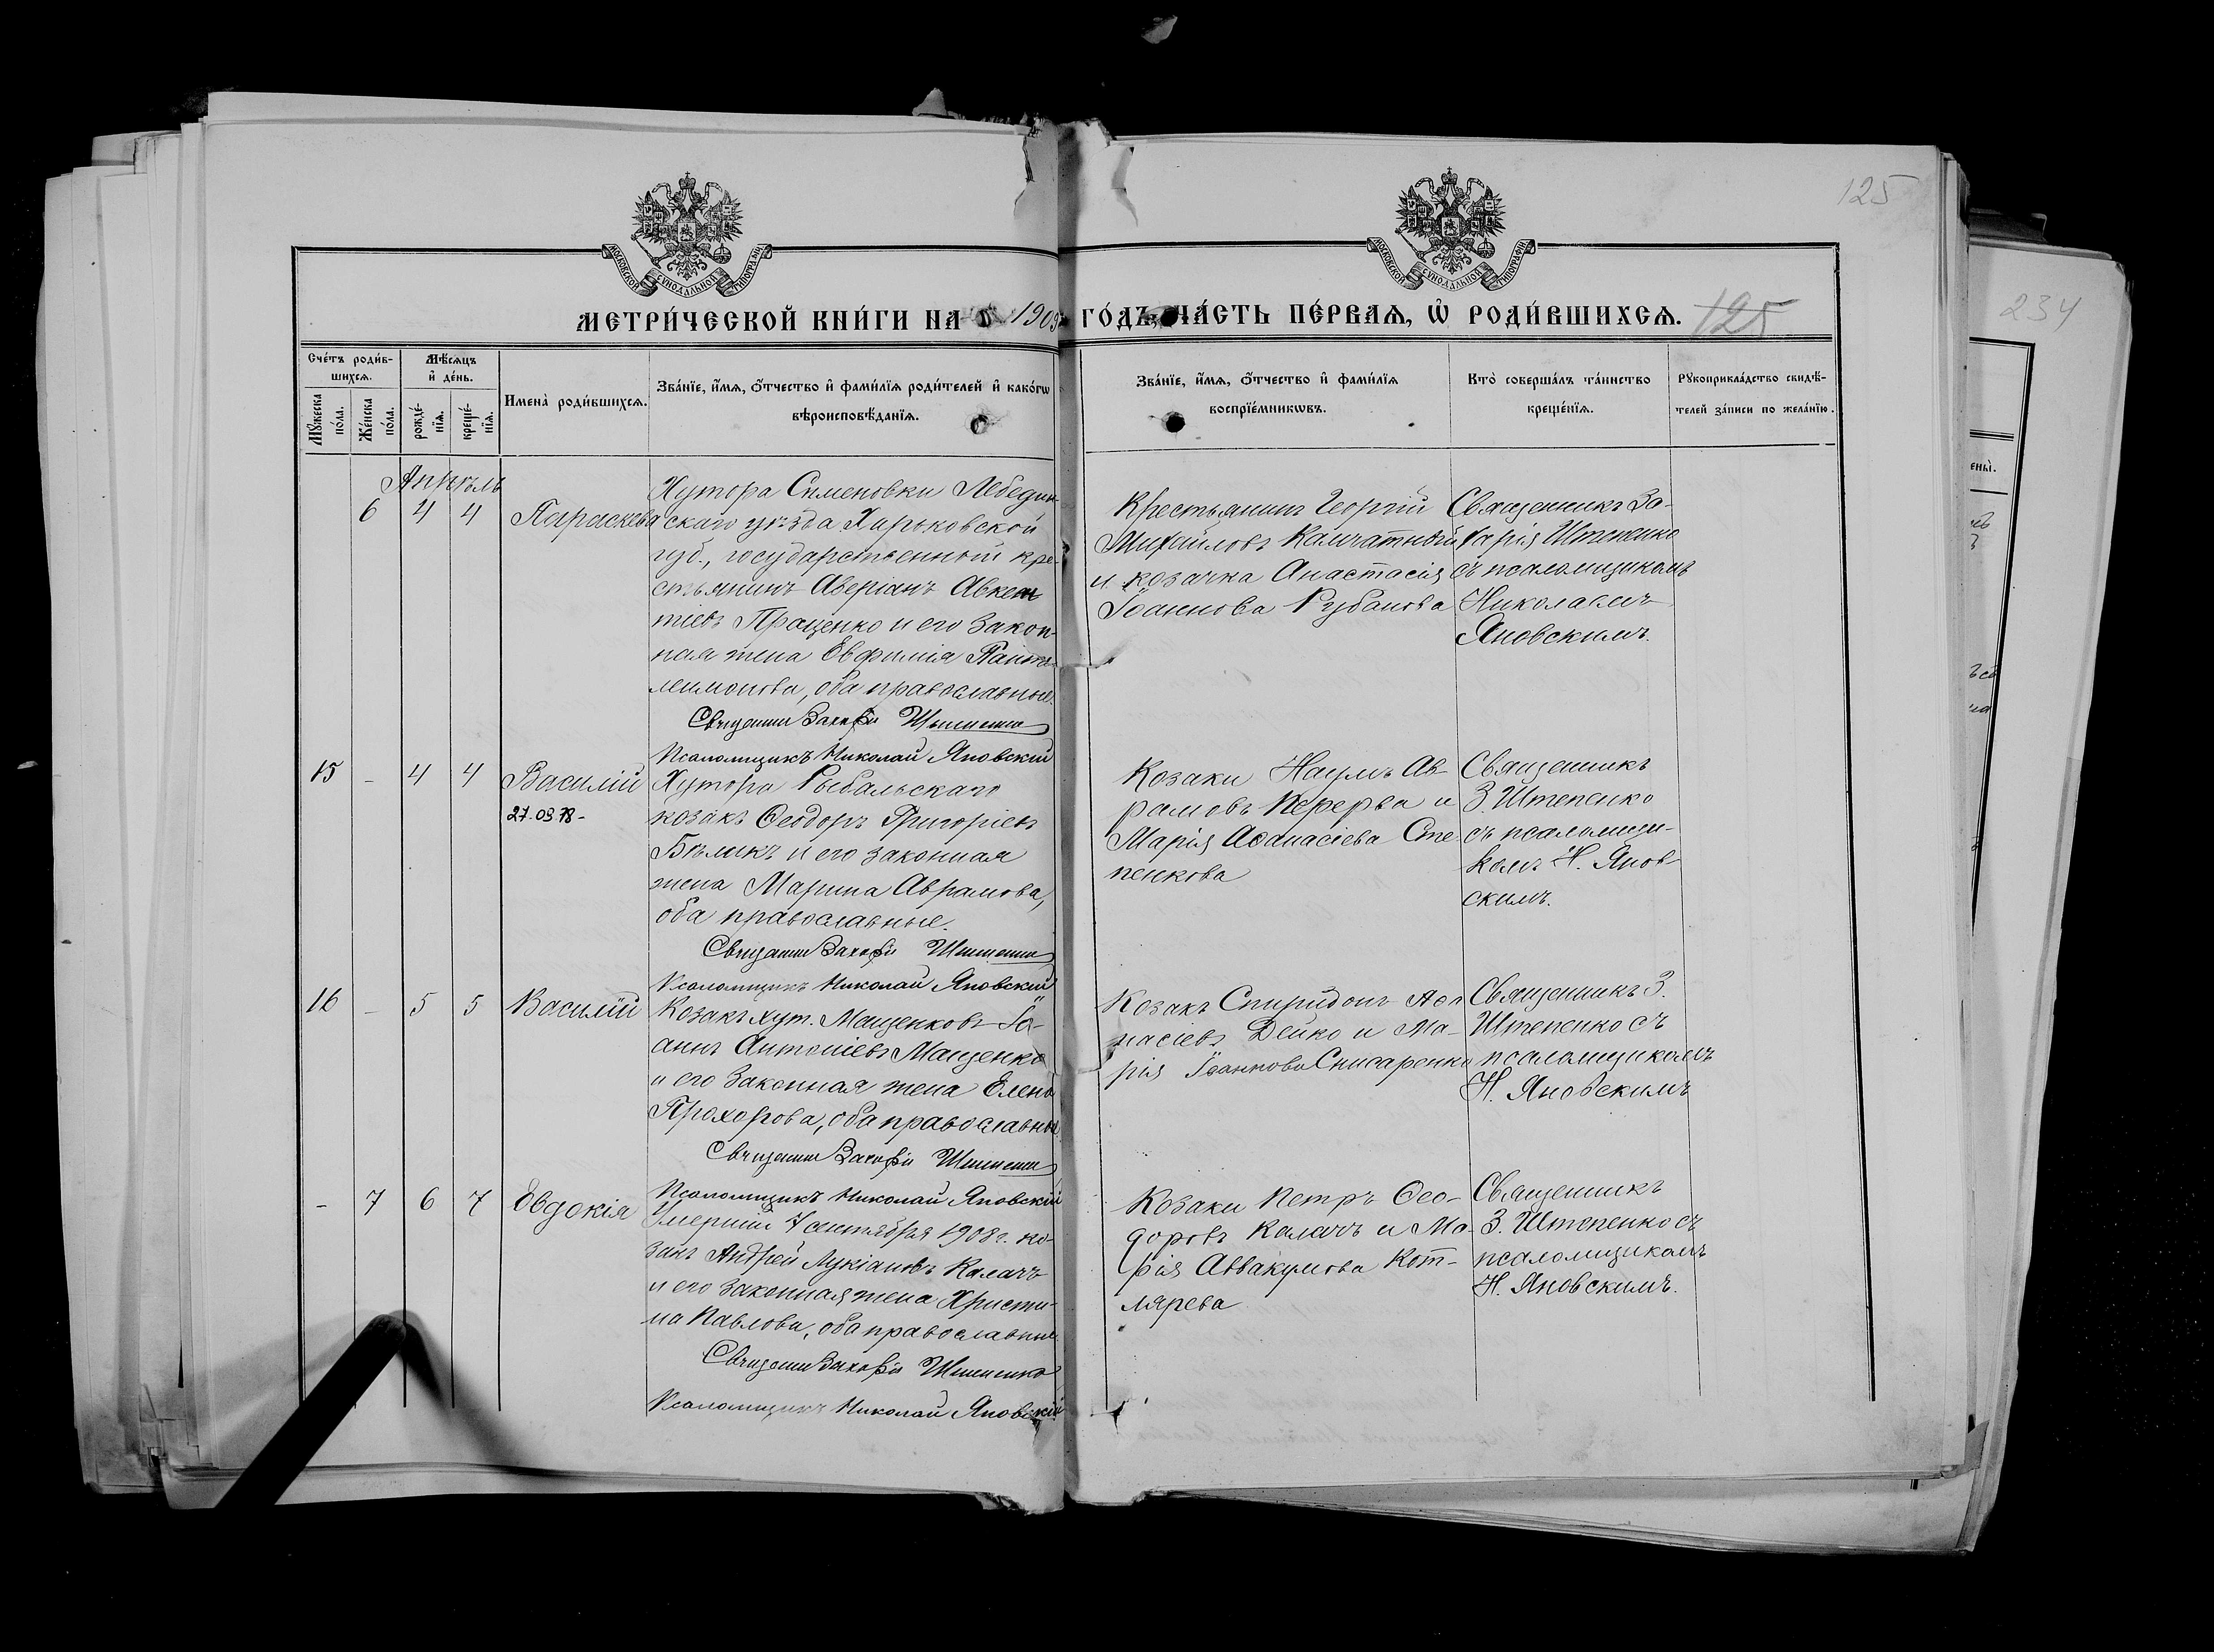 125
МОСКОВСКОЙ СУНОДАЛЬНОЙ ТИПОГРАФІИ
МОСКОВСКОЙ СУНОДАЛЬНОЙ ТИПОГРАФІИ
МЕТРИ́ЧЕСКОЙ КНИ́ГИ НА 1909 ГО́ДЪ, ЧА́СТЬ ПЕ́РВАЯ, Ѡ҆ РОДИ́ВШИХСЯ.
125
234
Сче́тъ роди́в-
шихся.
Мѣ́сяцъ
и҆ де́нь.
Му́жеска
по́ла.
Же́нска
по́ла.
рожде́-
нїя.
креще́-
нїя.
Имена̀ роди́вшихся.
Зва́нїе, и҆́мя, о҆́тчество и҆ фами́лїя роди́телей и҆ како́гѡ
вѣроисповѣ́данїя.
Зва́нїе, и҆́мя, о҆́тчество и҆ фами́лїя
воспрїе́мникѡвъ.
Кто̀ соверша́лъ та́инство
креще́нїя.
Рукоприкла́дство свидѣ́-
телей за́писи по жела́нїю.
Апрѣль
6 4 4 Параскева
Хутора Сименовки Лебедин-
скаго уѣзда Харьковской
губ., государственный кре-
стьянинъ Аверіанъ Авкен
тіевъ Пращенко и его закон-
ная жена Евфимія Пантe-
леимонова, оба православные.
Священникъ Захарій Штепенко
Псаломщикъ Николай Яновскій
Крестьянинъ Георгій
Михайловъ Камчатный
и козачка Анастасія
Іоаннова Рубанова
Священникъ За-
харія Штепенко
съ псаломщикомъ
Николаемъ
Яновскимъ.
15 - 4 4 Василій
27-09.18-
Хутора Рыбальскаго
козакъ Ѳеодоръ Григоріевъ
Бѣликъ и его законная
жена Марина Аврамова,
оба православные.
Священникъ Захарій Штепенко
Псаломщикъ Николай Яновскій
Козаки Наумъ Ав-
рамовъ Перерва и
Марія Аѳанасіева Сте-
пенкова
Священникъ
З. Штепенко
съ псаломщи-
комъ Н. Янов-
скимъ.
16 - 5 5 Василій
Козакъ хут. Мащенковъ Іо-
аннъ Антоніевъ Мащенко
и его законная жена Елена
Прохорова, оба православные
Священникъ Захарій Штепенко
Псаломщикъ Николай Яновскій
Козакъ Спиридонъ Аѳа
насіевъ Дейко и Ма-
рія Іоаннова Снисаренко
Священникъ З.
Штепенко съ
псаломщикомъ
Н. Яновскимъ
- 7 6 7 Евдокія
Умершій 7 сентября 1908 г. ко-
закъ Андрей Лукіановъ Калачъ
и его законная жена Христи-
на Павлова, оба православные
Священникъ Захарій Штепенко
Псаломщикъ Николай Яновскій
Козаки Петръ Ѳео-
доровъ Калачъ и Ма-
рія Аввакумова Кот-
лярева
Священникъ
З. Штепенко съ
псаломщикомъ
Н. Яновскимъ.